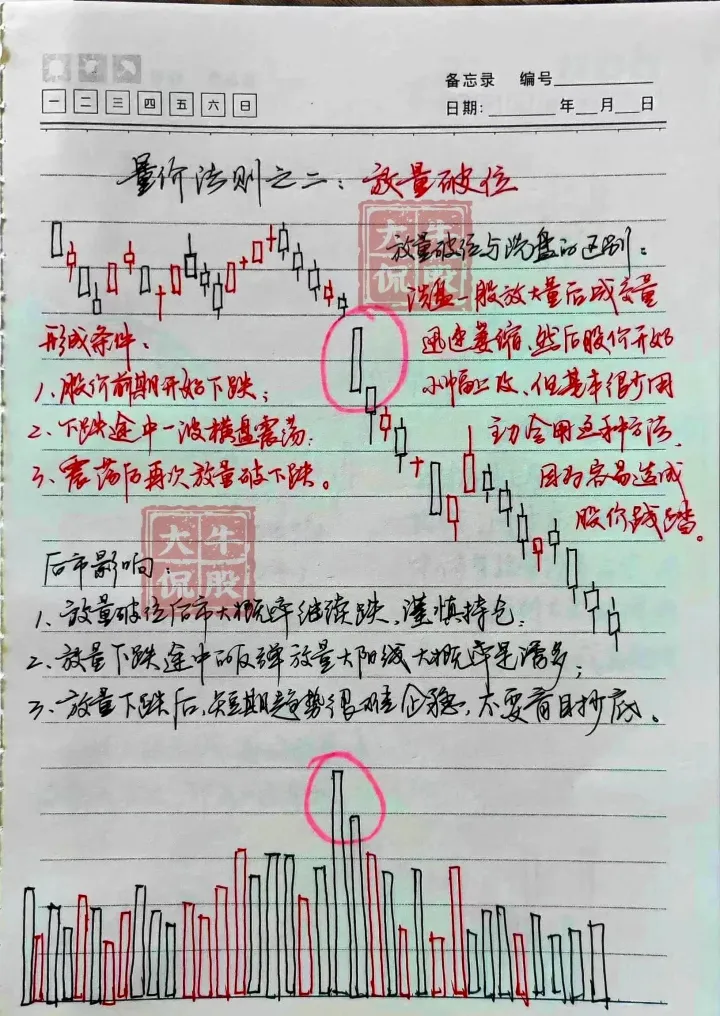 备忘录 编号
一 二 三 四 五 六 日
日期: 年 月 日
量价法则之二：放量破位
大牛侃股
放量破位与洗盘的区别：
洗盘一般放大量后成交量
迅速萎缩，然后股价开始
小幅上攻，但基本很少用
主力会用这种方法，
因为容易造成
股价践踏。
形成条件：
1、股价前期开始下跌；
2、下跌途中一波横盘震荡；
3、震荡后再次放量破下跌。
大牛侃股
后市影响：
1、放量破位后市大概率继续跌，谨慎持仓；
2、放量下跌途中的反弹放量大阳线大概率是诱多；
3、放量下跌后，短期趋势很难企稳，不要盲目抄底。